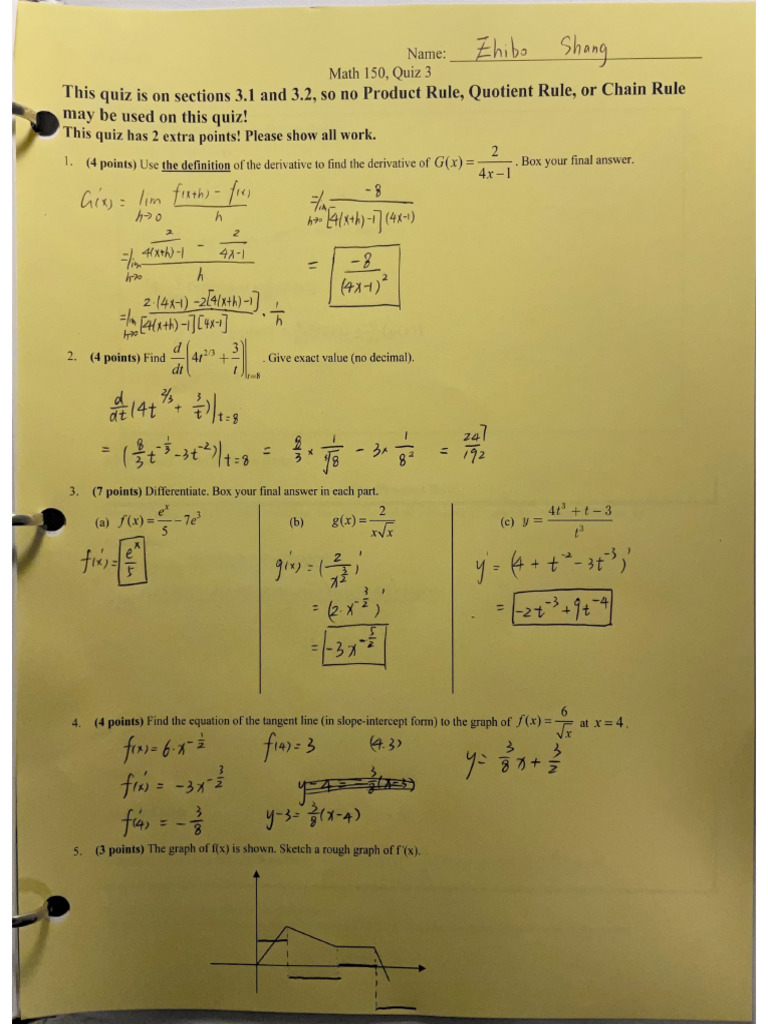 Name: Zhibo Shang
Math 150, Quiz 3
This quiz is on sections 3.1 and 3.2, so no Product Rule, Quotient Rule, or Chain Rule
may be used on this quiz!
This quiz has 2 extra points! Please show all work.
1. (4 points) Use the definition of the derivative to find the derivative of G(x) = 2/(4x−1). Box your final answer.
G'(x) = lim h→0 (f(x+h) − f(x))/h
= lim h→0 (2/(4(x+h)−1) − 2/(4x−1))/h
= lim h→0 (2·(4x−1) −2[4(x+h)−1])/([4(x+h)−1][4x−1]) · 1/h
= lim h→0 −8/([4(x+h)−1](4x−1))
= −8/(4x−1)²
2. (4 points) Find d/dt (4t^(2/3) + 3/t)|t=8. Give exact value (no decimal).
d/dt (4t^(2/3) + 3/t)|t=8
= (8/3 t^(−1/3) − 3t^(−2))|t=8 = 8/3 × 1/∛8 − 3× 1/8² = 247/192
3. (7 points) Differentiate. Box your final answer in each part.
(a) f(x) = e^x/5 − 7e³
f'(x) = e^x/5
(b) g(x) = 2/(x√x)
g'(x) = (2/x^(3/2))'
= (2·x^(−3/2))'
= −3x^(−5/2)
(c) y = (4t³ + t − 3)/t³
y' = (4 + t^(−2) − 3t^(−3))'
= −2t^(−3) + 9t^(−4)
4. (4 points) Find the equation of the tangent line (in slope-intercept form) to the graph of f(x) = 6/√x at x = 4.
f(x) = 6·x^(−1/2) f(4) = 3 (4.3)
f'(x) = −3x^(−3/2)
f'(4) = −3/8 y−3 = 3/8(x−4)
y = 3/8 x + 3/2
5. (3 points) The graph of f(x) is shown. Sketch a rough graph of f'(x).